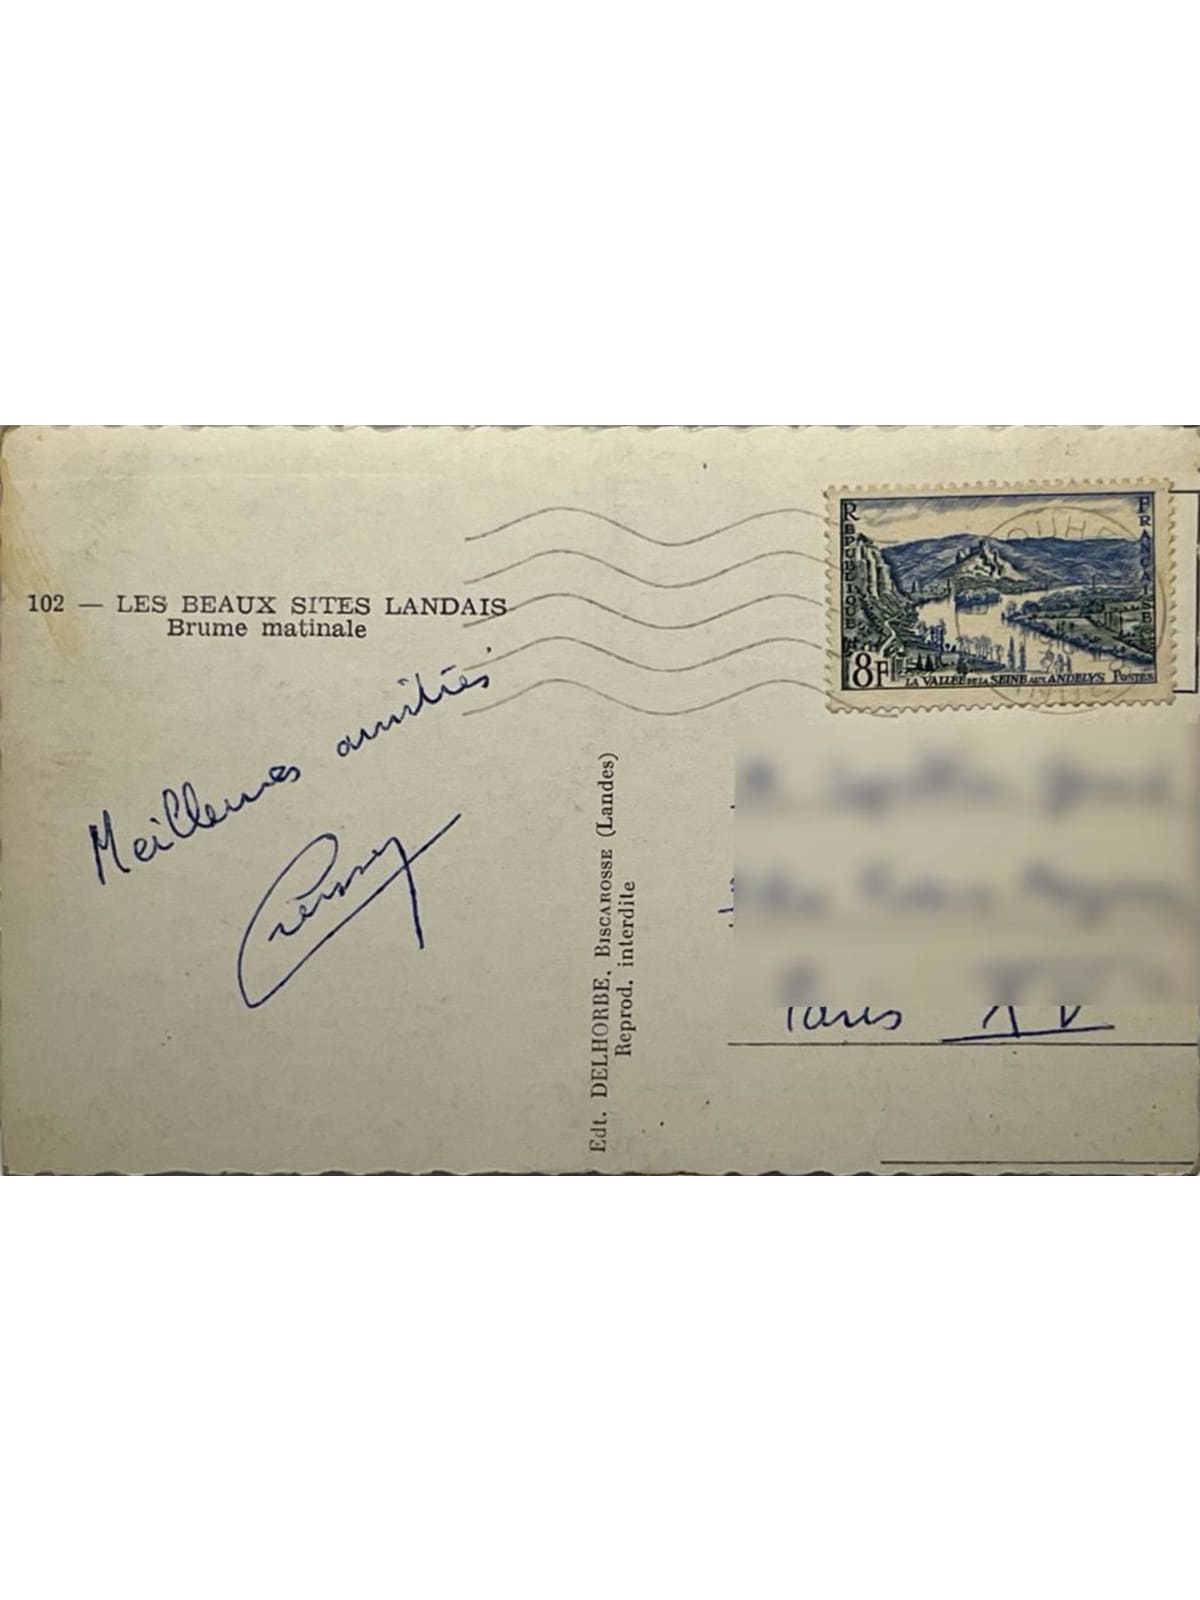 102 — LES BEAUX SITES LANDAIS
Brume matinale
Meilleures amitiés
Edt. DELHORBE. BISCAROSSE (Landes)
Reprod. interdite
REPUBLIQUE FRANCAISE
8F
LA VALLEE DE LA SEINE AUX ANDELYS POSTES
Paris XV